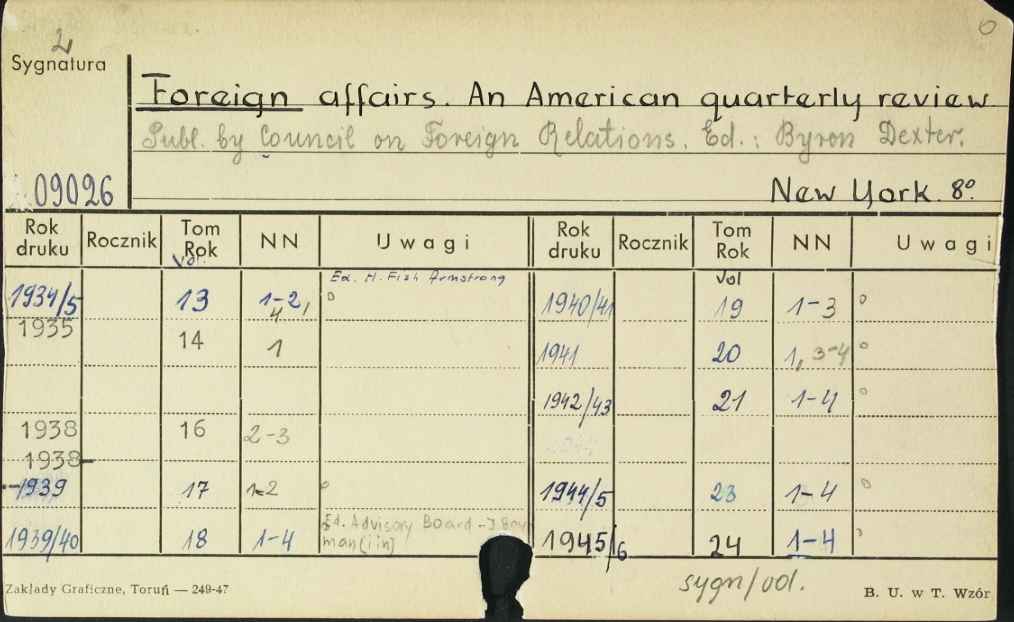 2
Sygnatura
Foreign affairs. An American quarterly review
Publ. by Council on Foreign Relations. Ed.: Byron Dexter.
09026
New York. 8º.
Rok druku Rocznik Tom Rok NN Uwagi Rok druku Rocznik Tom Rok NN Uwagi
Vol. Vol
Ed. H. Fish Armstrong
1934/5 13 1-2, 4 1940/41 19 1-3
1935 14 1 1941 20 1, 3-4
1942/43 21 1-4
1938 16 2-3
1938-
-1939 17 1-2 1944/5 23 1-4
1939/40 18 1-4 Ed. Advisory Board - I. Bowman [i in] 1945/6 24 1-4
sygn/vol.
Zakłady Graficzne, Toruń — 249-47 B. U. w T. Wzór